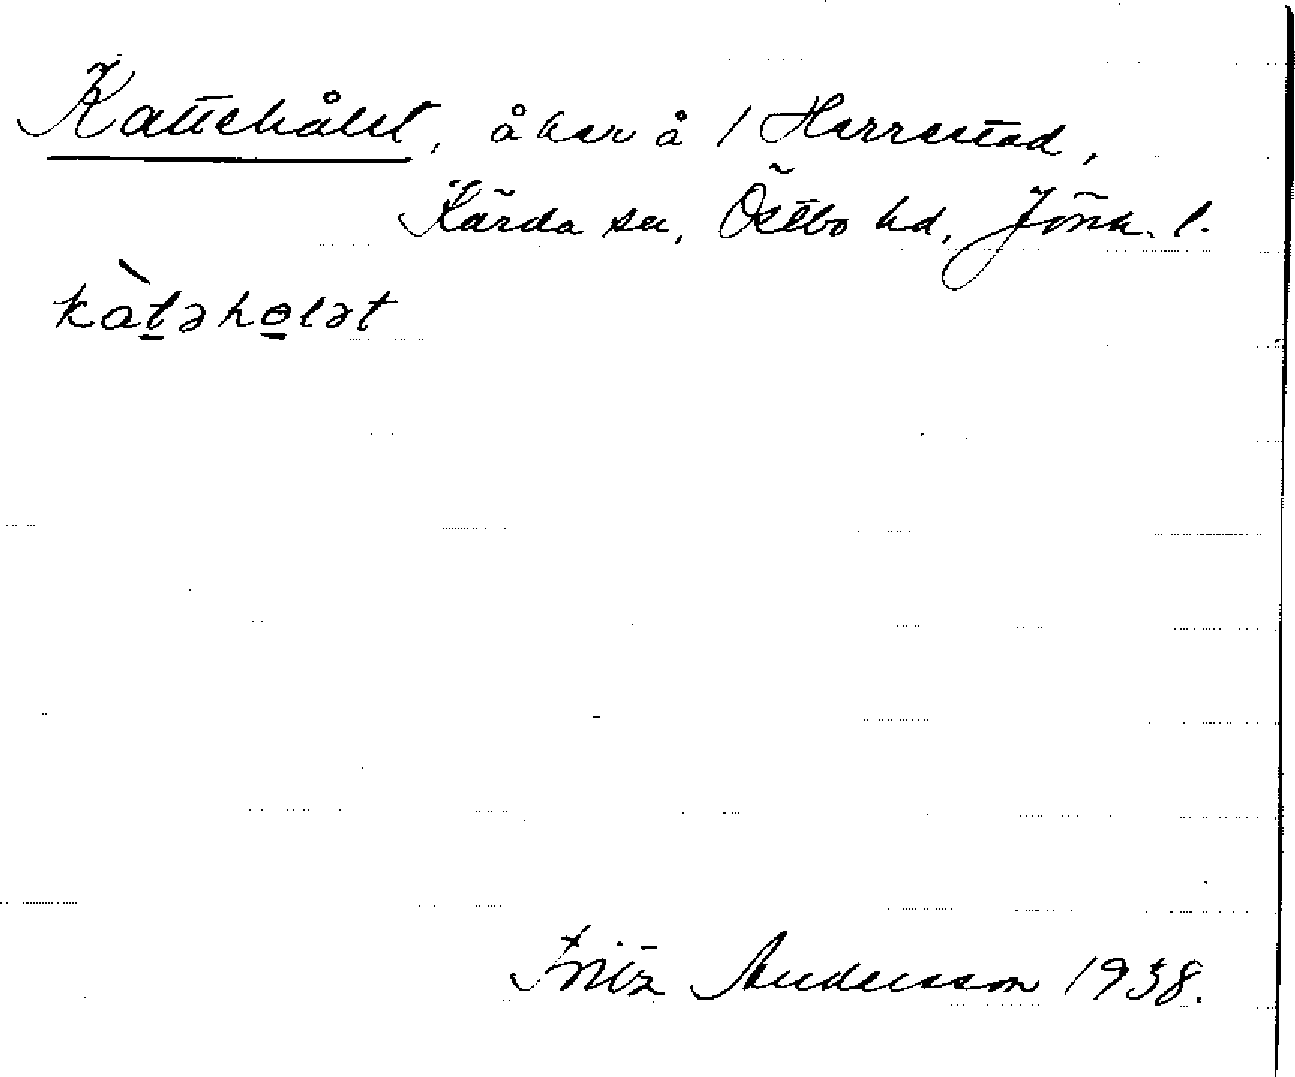 Kattehålet, åker å 1 Herrestad,
Kärda sn, Östbo hd, Jönk. l.
kàtəholət
Fritz Andersson 1938.